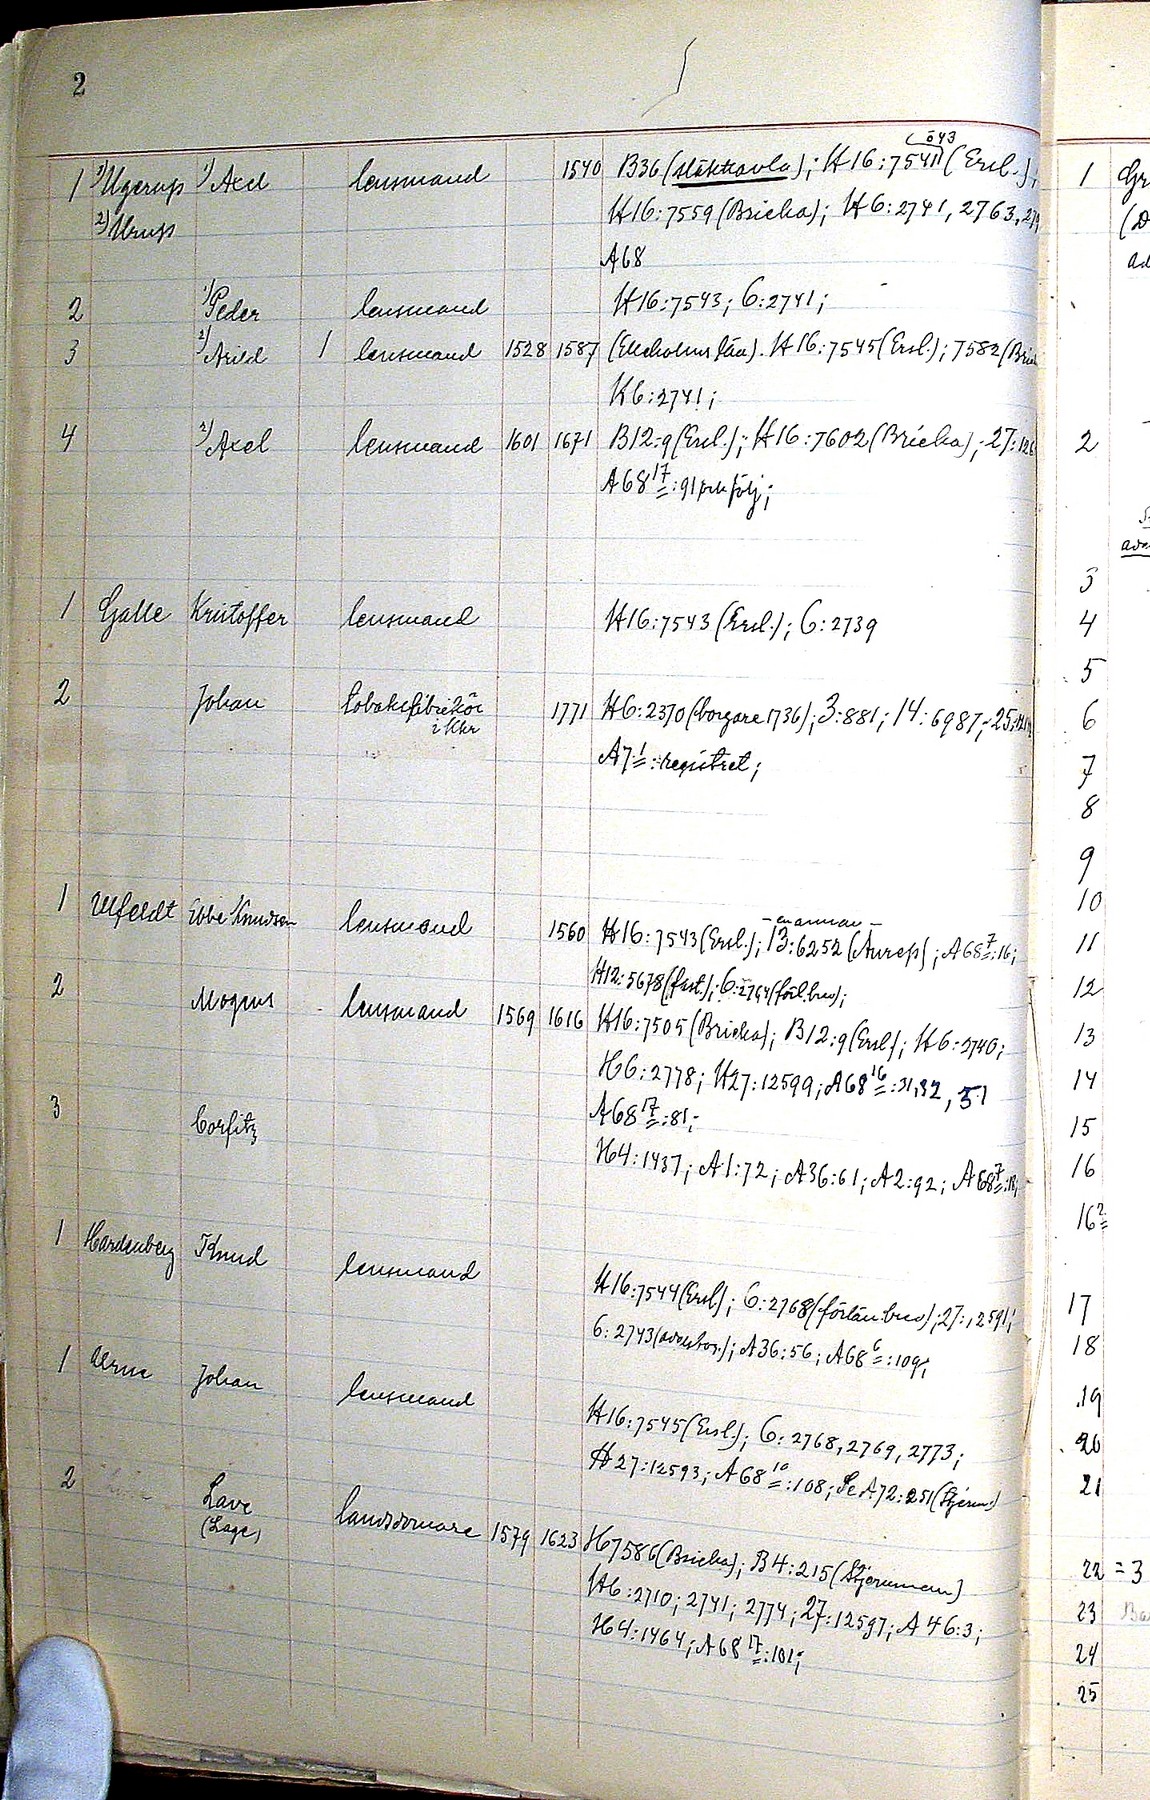 2
ö43
1 1) Ugerup 1) Axel lensmand 1540 B36 (släkttavla); H16:7541 (Ersl.);
2) Urup H16:7559 (Bricka); H6:2741, 2763,
A68
2 1) Peder lensmand H16:7543; 6:2741;
3 2) Arild 1 lensmand 1528 1587 (Elleholms län). H16:7545 (Ersl.); 7582 (Bric
H6:2741;
4 2) Axel lensmand 1601 1671 B12:9 (Ersl.); H16:7602 (Bricka); 27:126
A68 17:91 följ;
1 Galle Kristoffer lensmand H16:7543 (Ersl.); 6:2739
2 Johan tobaksfabrikör 1771 H6:2370 (borgare 1736); 3:881; 14:6987; 25:
i Khr
A7 1: registret;
- annan -
1 Ulfeldt Ebbe Knudsen lensmand 1560 H16:7543 (Ersl.); 13:6252 (Aurep); A68 7:16;
H12:5678 (fast.); 6:2764 (förl. brev);
2 Mogens lensmand 1569 1616 H16:7505 (Bricka); B12:9 (Ersl); H6:2740;
H6:2778; H27:12599; A68 16:31,32, 51
A68 17:81;
3 Corfitz H4:1437; A1:72; A36:61; A2:92; A68 7:18;
1 Hardenberg Knud lensmand H16:7544 (Ersl); 6:2768 (förlän. brev); 27:12591;
6:2743 (avsked.); A36:56; A68 6:109;
1 Urne Johan lensmand H16:7545 (Ersl.); 6:2768, 2769, 2773;
H27:12593; A68 10:108; Se A72:251 (Stjernm.)
2 Lave landsdomare 1579 1623 H7586 (Bricka); B4:215 (Stjernman)
(Lage)
H6:2710; 2741; 2774; 27:12597; A46:3;
H4:1464; A68 17:101;
1 Gr
(D
ad
2
3
4
5
6
7
8
9
10
11
12
13
14
15
16
16 2
17
18
19
20
21
22 = 3
23 Ba
24
25